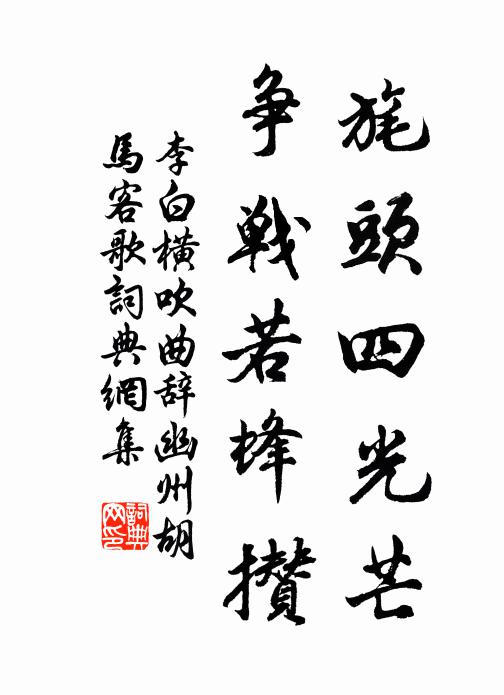 旄頭四光芒
争戰若蜂攅
李白橫吹曲辞幽州胡
馬客歌詞典網集
詞典网印